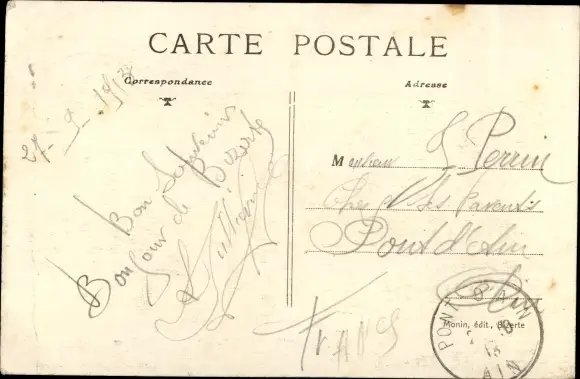 CARTE POSTALE
Correspondance
Adresse
27-9-1913
Bon Souvenir
Bonjour de Bizerte
Monsieur
Perrin
Chez Ses Parents
Pont d'Ain
Ain
FRANCE
Monin, édit., Bizerte
PONT D'AIN
AIN